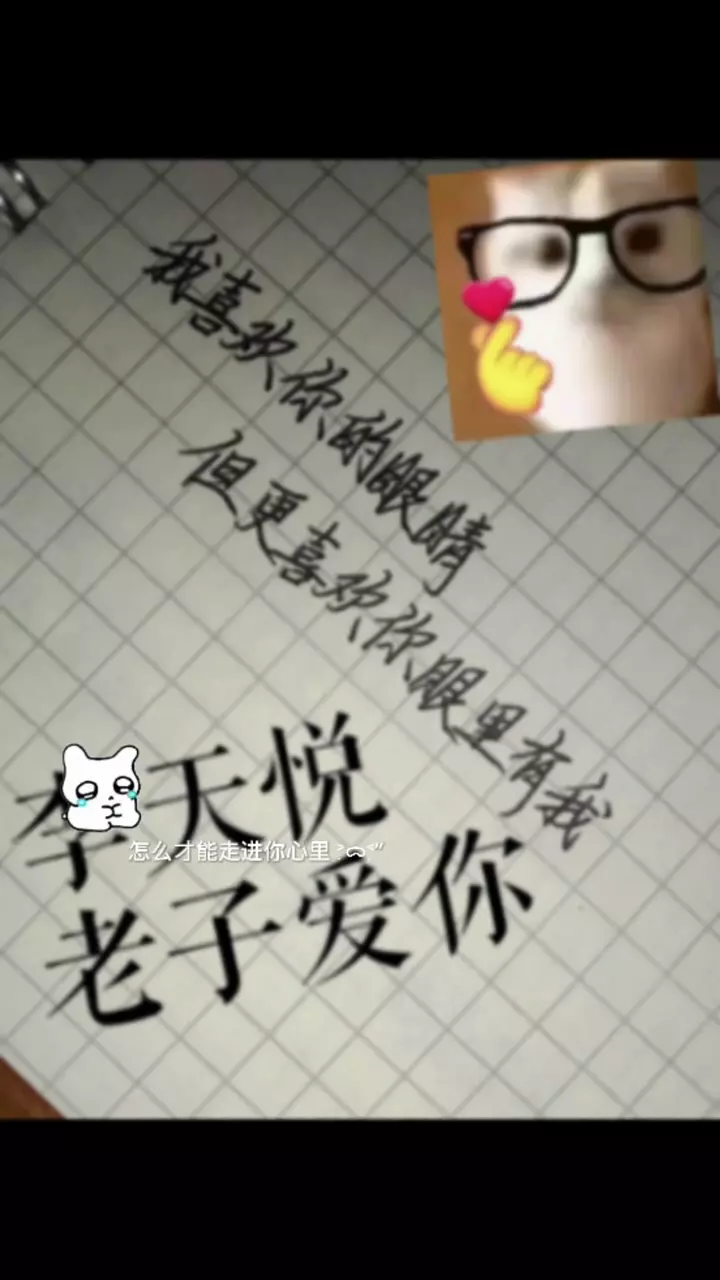 我喜欢你的眼睛
但更喜欢你眼里有我
李天悦
怎么才能走进你心里
老子爱你